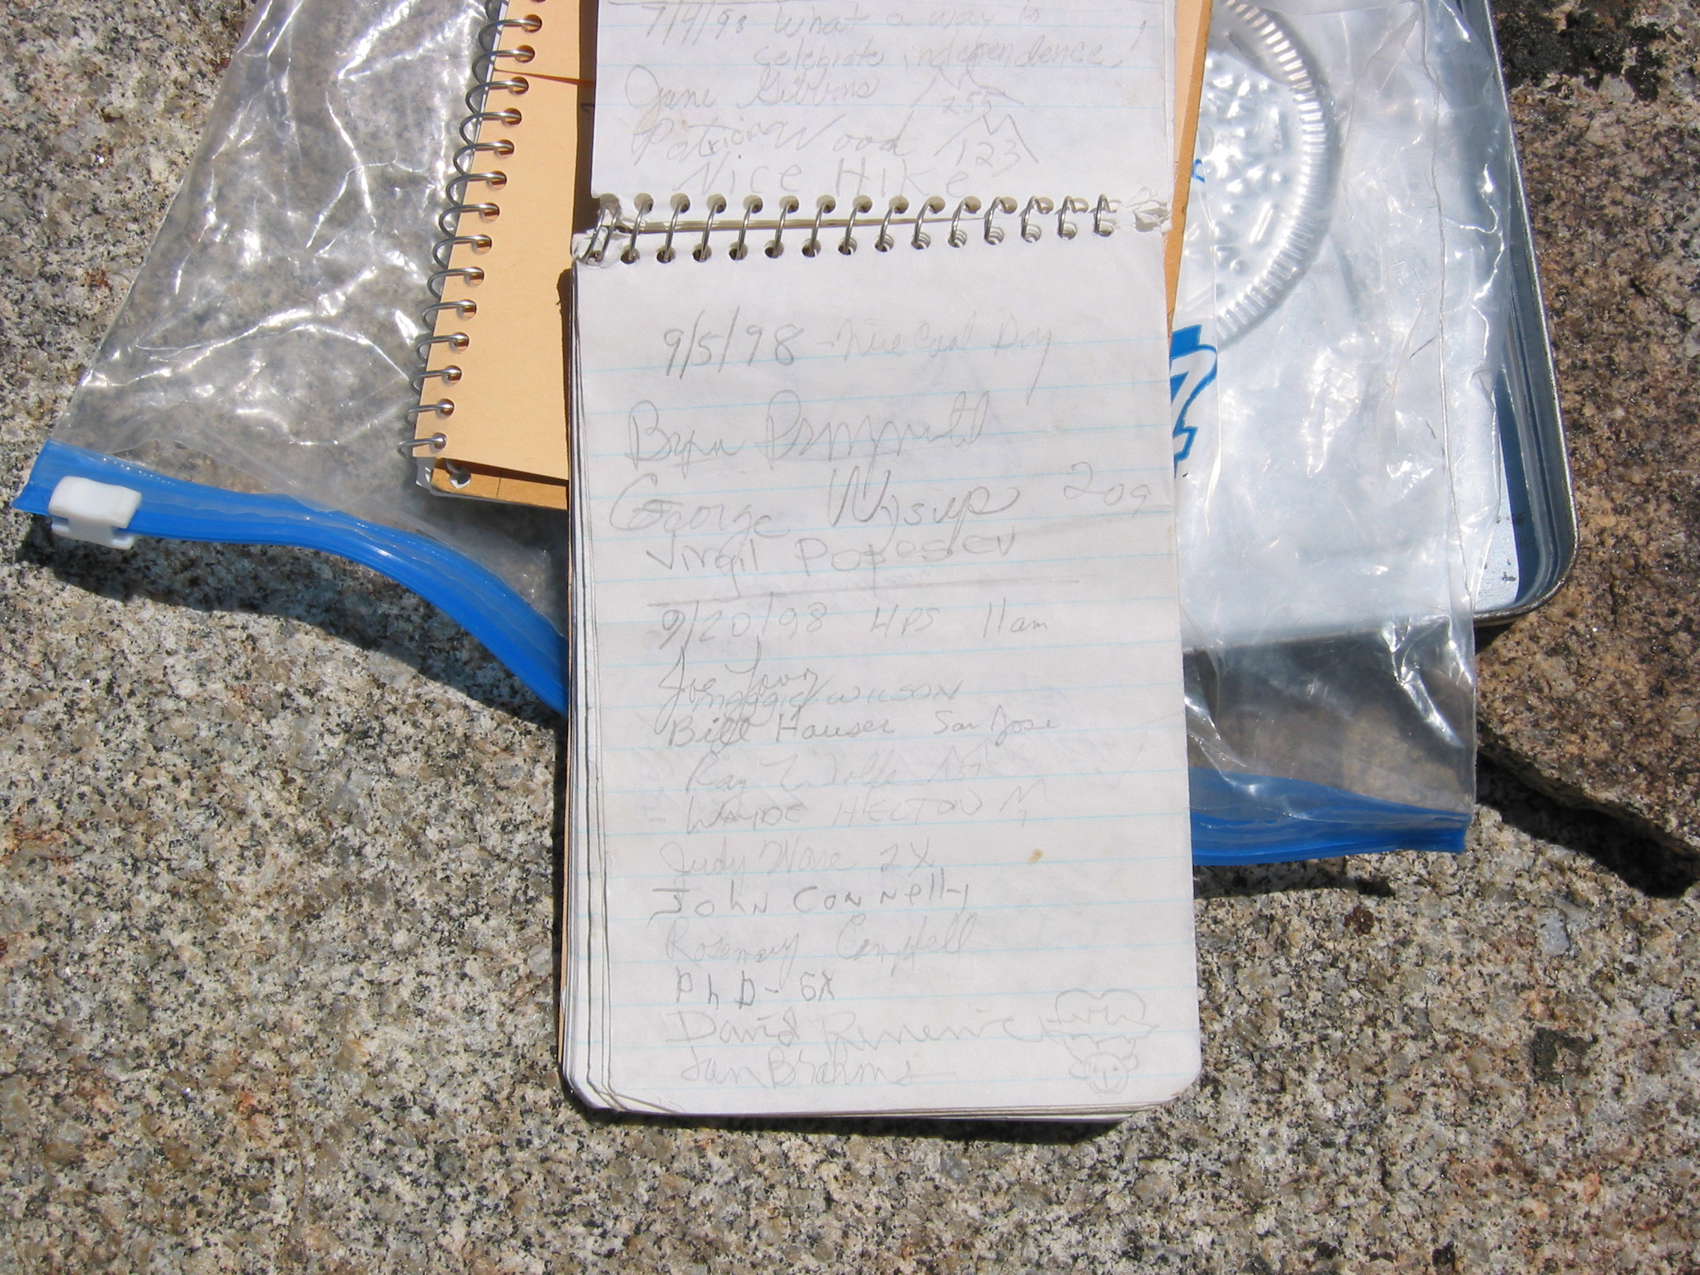 7/4/98 What a way to
celebrate independence!
Jane Gibbons 255
Patricia Wood 123
Nice Hike
9/5/98 - Nice Cool Day
George Wysup 209
Virgil Popescu
9/20/98 HPS 11am
Joe Young
Maggie WILSON
Bill Hauser San Jose
Ray Wolfe
WAYDE HELTON M
Judy Ware 2X
John Connelly
Rosemary Campbell
PhD - 6X
David
Jan Brahms